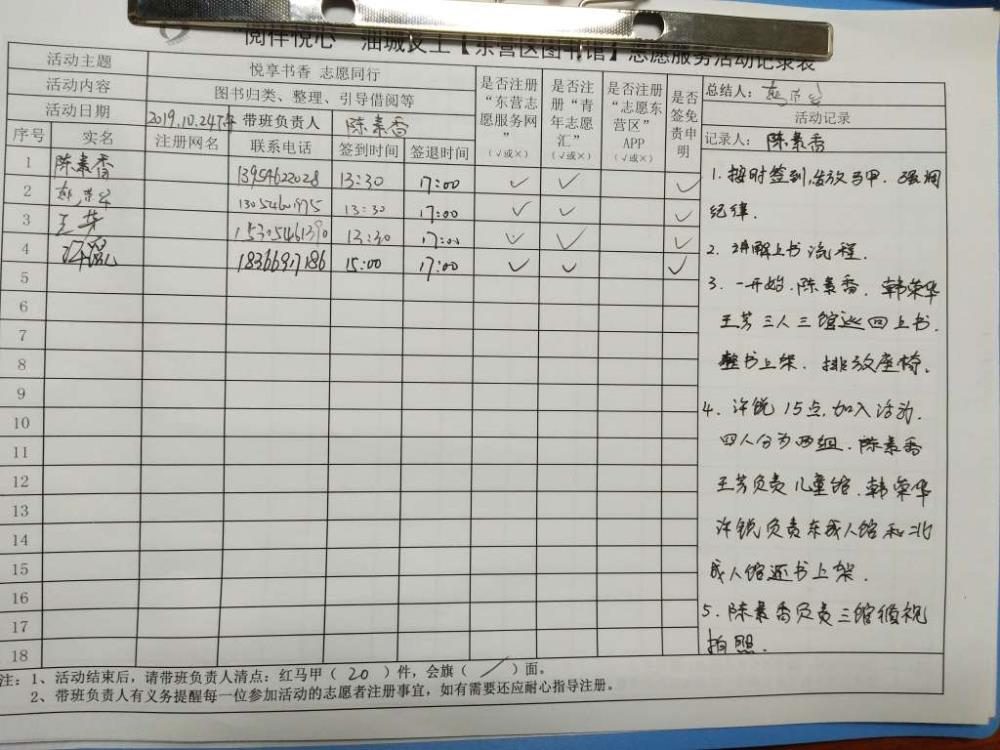 "阅伴悦心 油城义工【东营区图书馆】志愿服务活动记录表
活动主题 悦享书香 志愿同行
活动内容 图书归类、整理、引导借阅等
活动日期 2019.10.24下午 带班负责人 陈素香
序号 实名 注册网名 联系电话 签到时间 签退时间 是否注册“东营志愿服务网” (√或×) 是否注册“青年志愿汇” (√或×) 是否注册“志愿东营区”APP (√或×) 是否签免责申明
1 陈素香 13954622028 13:30 17:00 ✓ ✓ ✓
2 13:30 17:00 ✓ ✓ ✓
3 王芳 15305461390 13:30 17:00 ✓ ✓ ✓
4 许锐 18366917186 15:00 17:00 ✓ ✓ ✓
5
6
7
8
9
10
11
12
13
14
15
16
17
18
总结人:
活动记录
记录人: 陈素香
1. 按时签到,发放马甲. 强调
纪律.
2. 讲解上书流程.
3. 一开始.陈素香. 韩荣华
王芳三人三馆巡回上书.
整书上架. 排放座椅.
4. 许锐 15点,加入活动.
四人分为两组. 陈素香
王芳负责儿童馆. 韩荣华
许锐负责东成人馆和北
成人馆还书上架.
5. 陈素香负责三馆循视
拍照.
注:1、活动结束后,请带班负责人清点:红马甲( 20 )件,会旗( / )面。
2、带班负责人有义务提醒每一位参加活动的志愿者注册事宜,如有需要还应耐心指导注册。